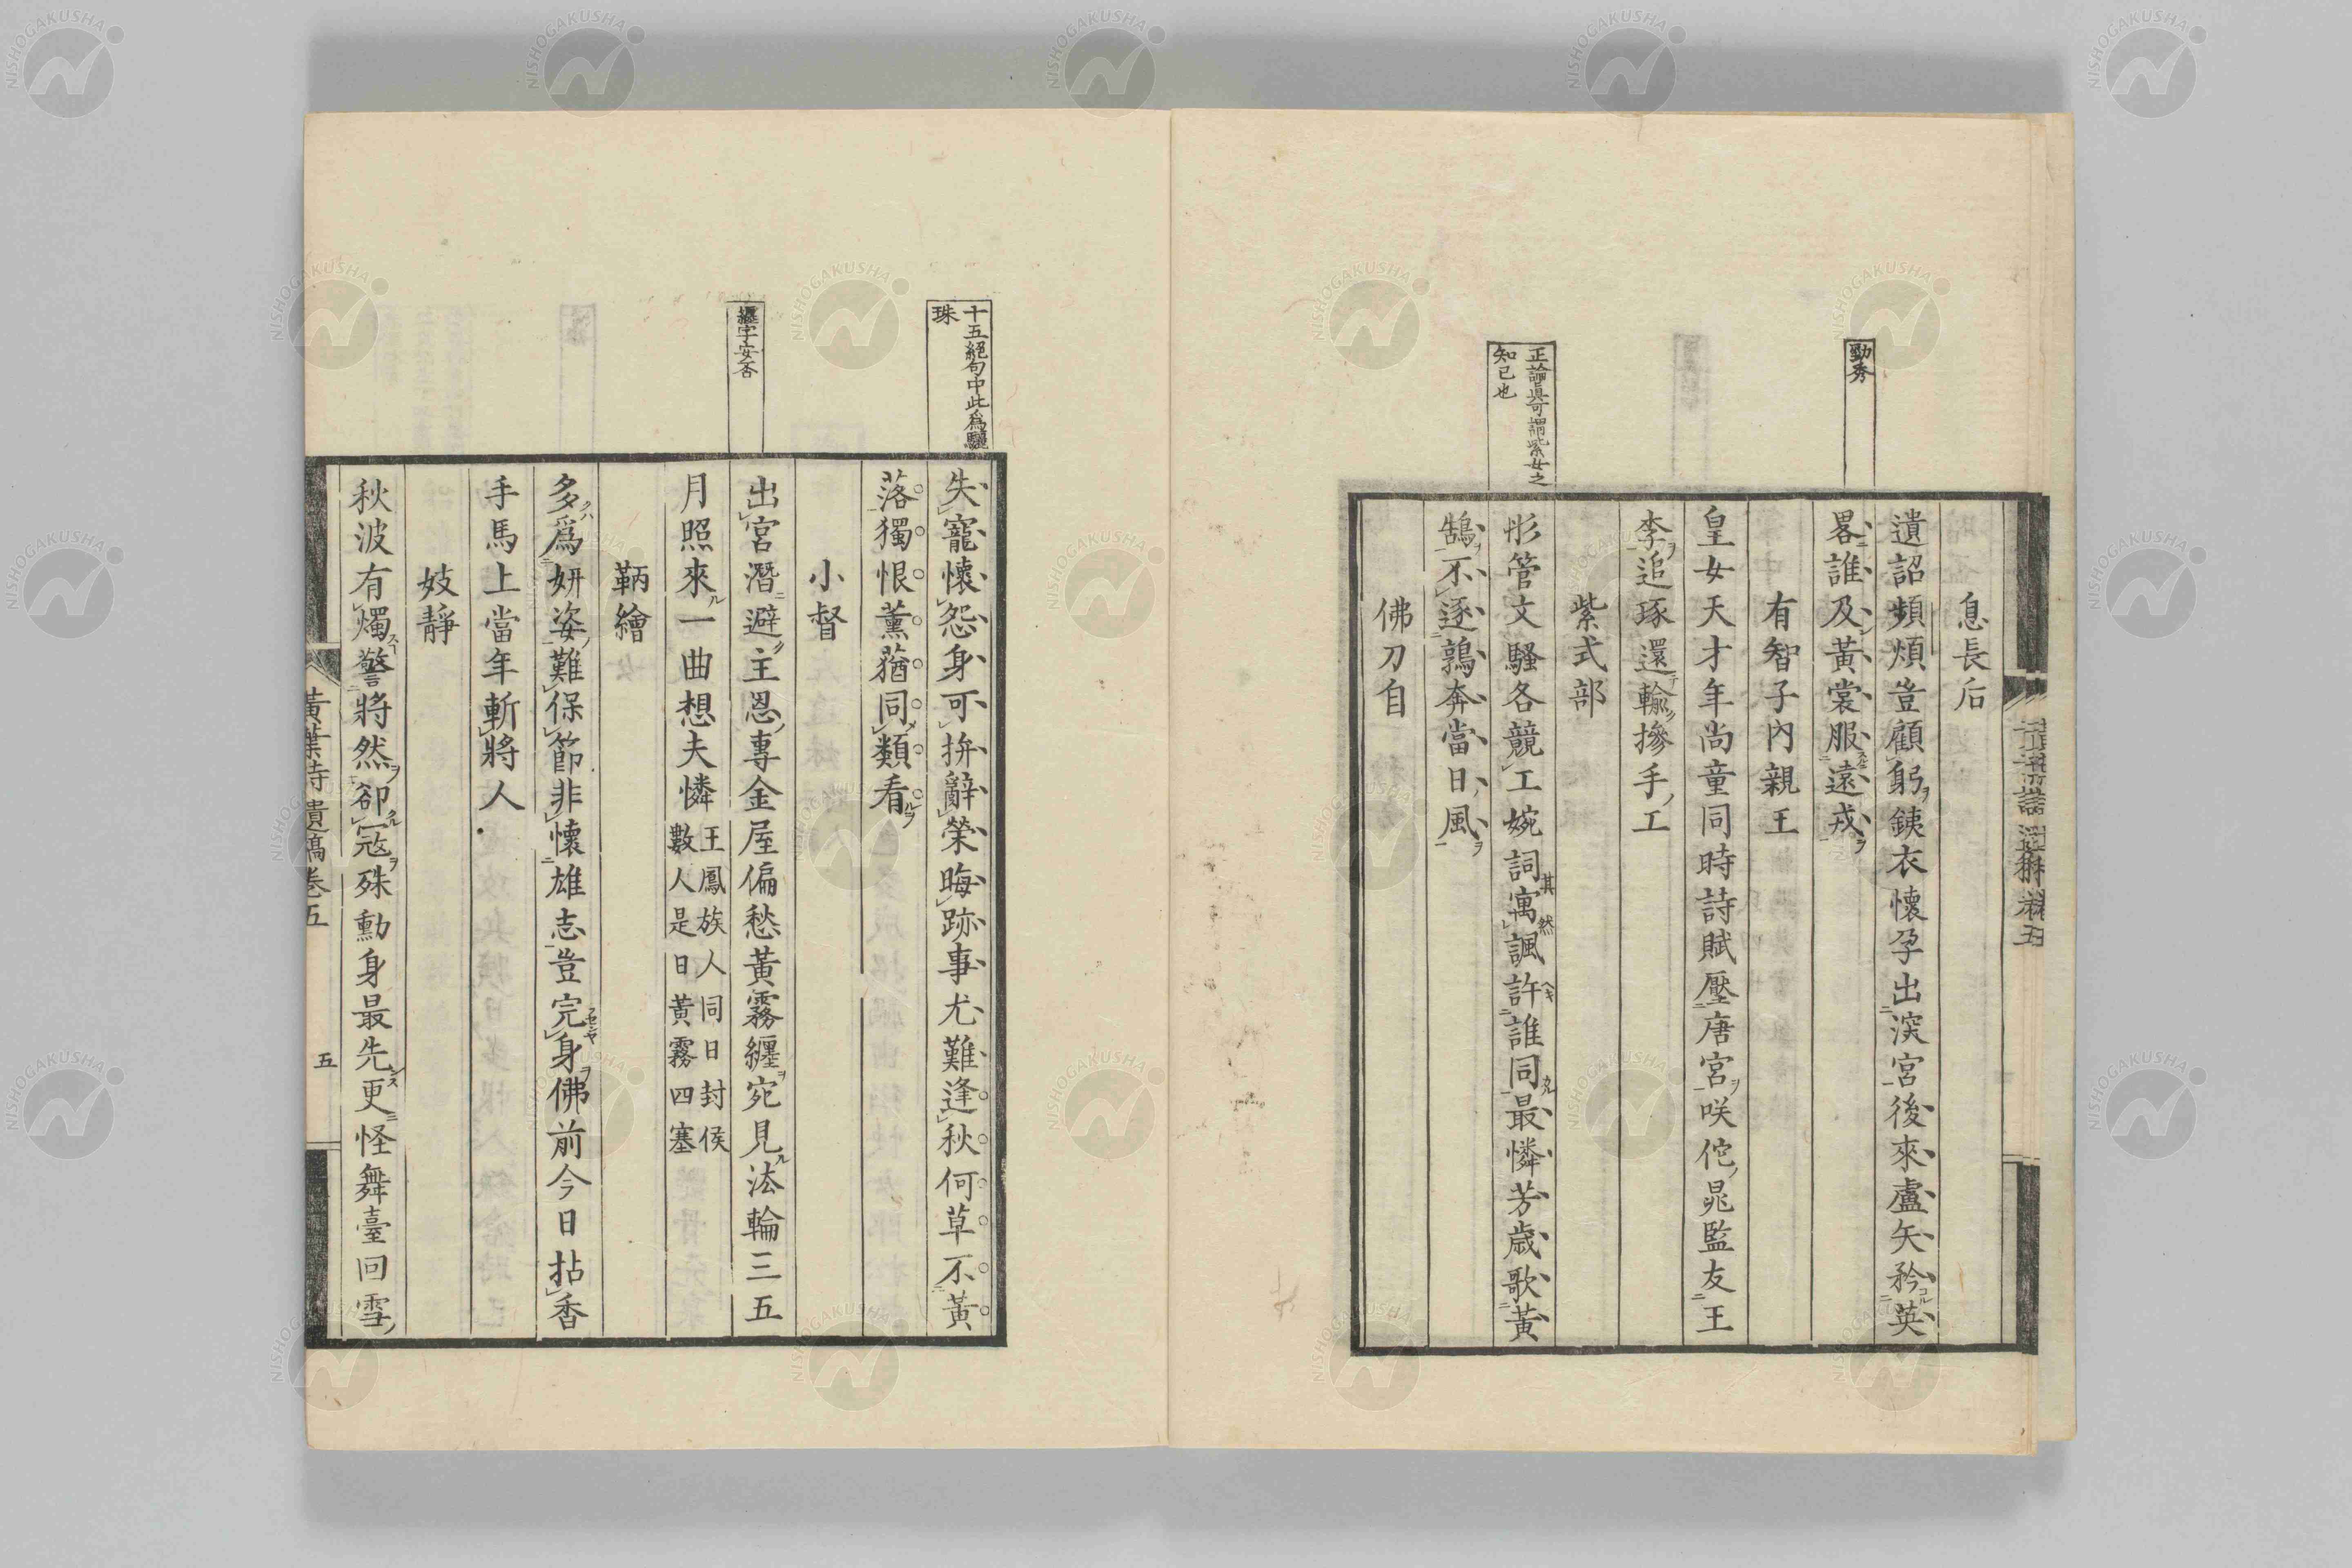 勁秀
正論眞可謂紫女之
知己也
息長后
遺詔頻煩豈顧躬鋏衣懷孕出深宮後來盧矢矜英
畧誰及黃裳服遠戎
有智子內親王
皇女天才年尚童同時詩賦壓唐宮咲佗晁監友王
李追琢還輸摻手工
紫式部
彤管文騷各競工婉詞寓諷許誰同最憐芳歲歌黃
鵠不逐鶉奔當日風
佛刀自
十五絕句中此爲驪
珠
纏字妥否
失寵懷怨身可拚辭榮晦跡事尤難逢秋何草不黃
落獨恨薰蕕同類看
小督
出宮潛避主恩專金屋偏愁黃霧纏宛見法輪三五
月照來一曲想夫憐
王鳳族人同日封侯
數人是日黃霧四塞
鞆繪
多爲妍姿難保節非懷雄志豈完身佛前今日拈香
手馬上當年斬將人
妓靜
秋波有燭警將然卻寇殊勳身最先更怪舞臺回雪
黃葉詩遺稿卷五
五
NISHOGAKUSHA